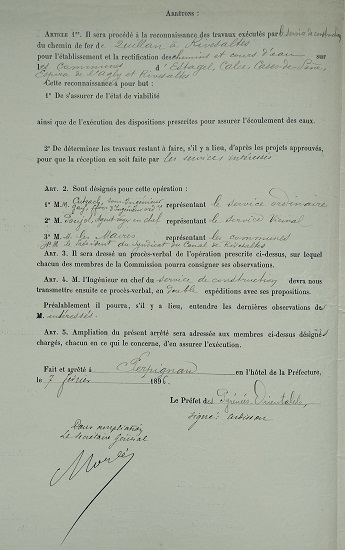 ARRÊTONS :
ARTICLE 1er. Il sera procédé à la reconnaissance des travaux exécutés par le service de construction
du chemin de fer de Quillan à Rivesaltes
pour l'établissement et la rectification des chemins et cours d'eau sur
les communes d'Estagel, Calce, Cases-de-Pène,
Espira de l'Agly et Rivesaltes
Cette reconnaissance a pour but :
1° De s'assurer de l'état de viabilité
ainsi que de l'exécution des dispositions prescrites pour assurer l'écoulement des eaux.
2° De déterminer les travaux restant à faire, s'il y a lieu, d'après les projets approuvés,
pour que la réception en soit faite par les services intéressés
ART. 2. Sont désignés pour cette opération :
1° M.M. sous Ingénieur
représentant le service ordinaire
2° M. Agent-voyer en chef représentant le service vicinal
3° M.M. les Maires représentant les communes
M. le Président du Syndicat du Canal de Rivesaltes
ART. 3. Il sera dressé un procès-verbal de l'opération prescrite ci-dessus, sur lequel
chacun des membres de la Commission pourra consigner ses observations.
ART. 4. M. l'Ingénieur en chef du service de construction devra nous
transmettre ensuite ce procès-verbal, en double expéditions avec ses propositions.
Préalablement il pourra, s'il y a lieu, entendre les dernières observations de
M. intéressés.
ART. 5. Ampliation du présent arrêté sera adressée aux membres ci-dessus désignés
chargés, chacun en ce qui le concerne, d'en assurer l'exécution.
Fait et arrêté à Perpignan en l'hôtel de la Préfecture,
le 7 février 1896.
Le Préfet des Pyrénées-Orientales,
signé :
Pour ampliation
Le Secrétaire Général